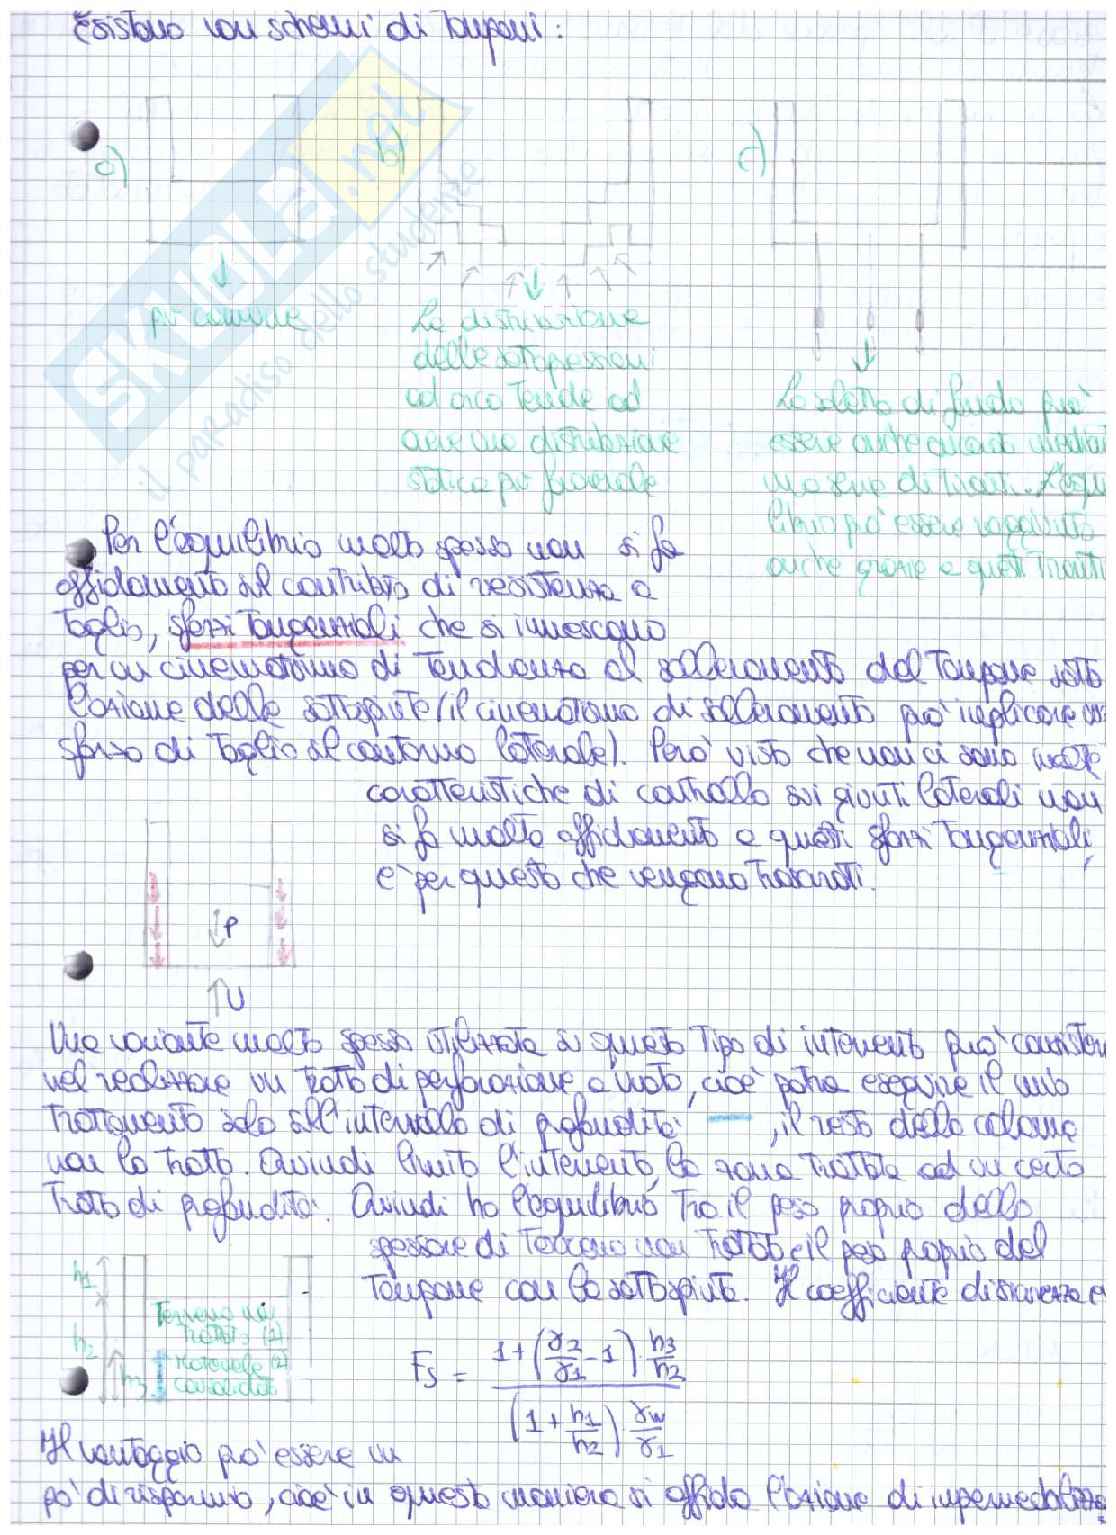 Esistono vari schemi di Tamponi:
a)
b)
c)
più comune
La distribuzione
delle sottopressioni
ad arco tende ad
avere una distribuzione
statica più favorevole
La soletta di fondo può
essere anche
una serie di tiranti. L'equi
librio può essere raggiunto
anche grazie a questi tiranti
Per l'equilibrio molto spesso non si fa
affidamento sul contributo di resistenza a
Taglio, sforzi Tangenziali che si innescano
per un cinematismo di Tendenza al sollevamento del Tampone sotto
l'azione delle sottospinte (il cinematismo di sollevamento può implicare uno
sforzo di Taglio sul contorno laterale). Però visto che non ci sono molte
caratteristiche di controllo sui giunti laterali non
si fa molto affidamento a questi sforzi Tangenziali,
e' per questo che vengono Trascurati.
P
U
Una variante molto spesso utilizzata su questo Tipo di interventi può consistere
nel realizzare un Tratto di perforazione a vuoto, cioè potrei eseguire il mio
Trattamento solo sull'intervallo di profondità , il resto della colonna
non lo Tratto. Quindi limito l'intervento, la zona Trattata ad un certo
Tratto di profondità. Quindi ho l'equilibrio Tra il peso proprio dello
spessore di Terreno non Trattato e il peso proprio del
Tampone con la sottospinta. Il coefficiente di sicurezza è
h1
h2
h3
Terreno non
trattato (1)
Materiale (2)
consolidato
Fs = 1+(γ2/γ1 -1)·h3/h2 / (1+h1/h2)·γw/γ1
Il vantaggio può essere un
pò di risparmio, cioè in questa maniera si affida l'azione di impermeabilizza
SKUOLA.net
il paradiso dello studente